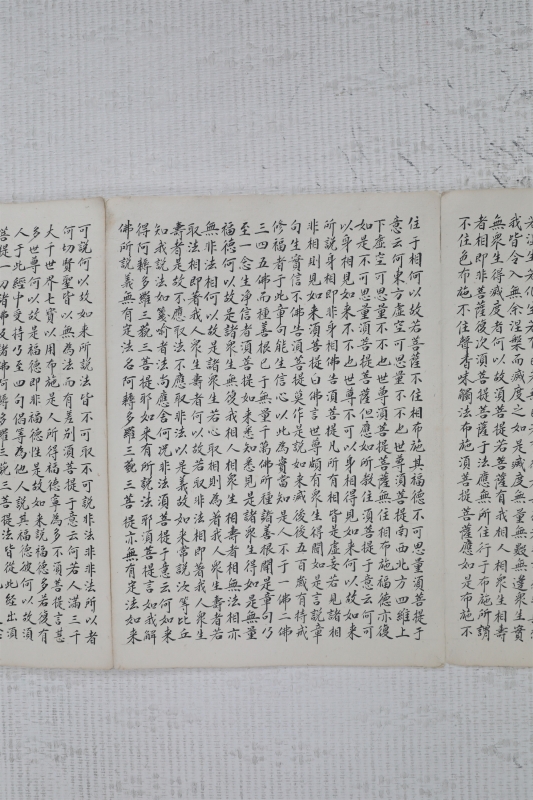 我皆令入無餘涅槃而滅度之如是滅度無量無數無邊衆生實
無衆生得滅度者何以故須菩提若菩薩有我相人相衆生相壽
者相即非菩薩復次須菩提菩薩于法應無所住行于布施所謂
不住色布施不住聲香味觸法布施須菩提菩薩應如是布施不
住于相何以故若菩薩不住相布施其福德不可思量須菩提于
意云何東方虛空可思量不不也世尊須菩提南西北方四維上
下虛空可思量不不也世尊須菩提菩薩無住相布施福德亦復
如是不可思量須菩提菩薩但應如所教住須菩提于意云何可
以身相見如來不不也世尊不可以身相得見如來何以故如來
所說身相即非身相佛告須菩提凡所有相皆是虛妄若見諸相
非相則見如來須菩提白佛言世尊頗有衆生得聞如是言說章
句生實信不佛告須菩提莫作是說如來滅後後五百歲有持戒
修福者于此章句能生信心以此為實當知是人不于一佛二佛
三四五佛而種善根已于無量千萬佛所種諸善根聞是章句乃
至一念生净信者須菩提如來悉知悉見是諸衆生得如是無量
福德何以故是諸衆生無復我相人相衆生相壽者相無法相亦
無非法相何以故是諸衆生若心取相則為著我人衆生壽者若
取法相即著我人衆生壽者何以故若取非法相即著我人衆生
壽者是故不應取法不應取非法以是義故如來常說汝等比丘
知我說法如筏喻者法尚應舍何況非法須菩提于意云何如來
得阿耨多羅三藐三菩提耶如來有所說法耶須菩提言如我解
佛所說義無有定法名阿耨多羅三藐三菩提亦無有定法如來
可說何以故如來所說法皆不可取不可說非法非非法所以者
何切賢聖皆以無為法而有差別須菩提于意云何若人滿三千
大千世界七寶以用布施是人所得福德寧為多不須菩提言甚
多世尊何以故是福德即非福德性是故如來說福德多若復有
人于此經中受持乃至四句偈等為他人說其福德彼何以故須
菩提一切諸佛及諸佛阿耨多羅三藐三菩提法皆從此經出須